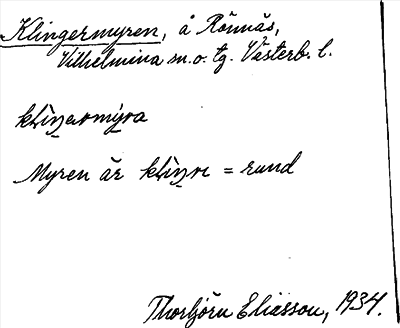 Klingermyren, å Rönnäs,
Vilhelmina sn. o. tg. Västerb. l.
klìŋərmýra
Myren är klìŋər = rund
Thorbjörn Eliasson, 1934.